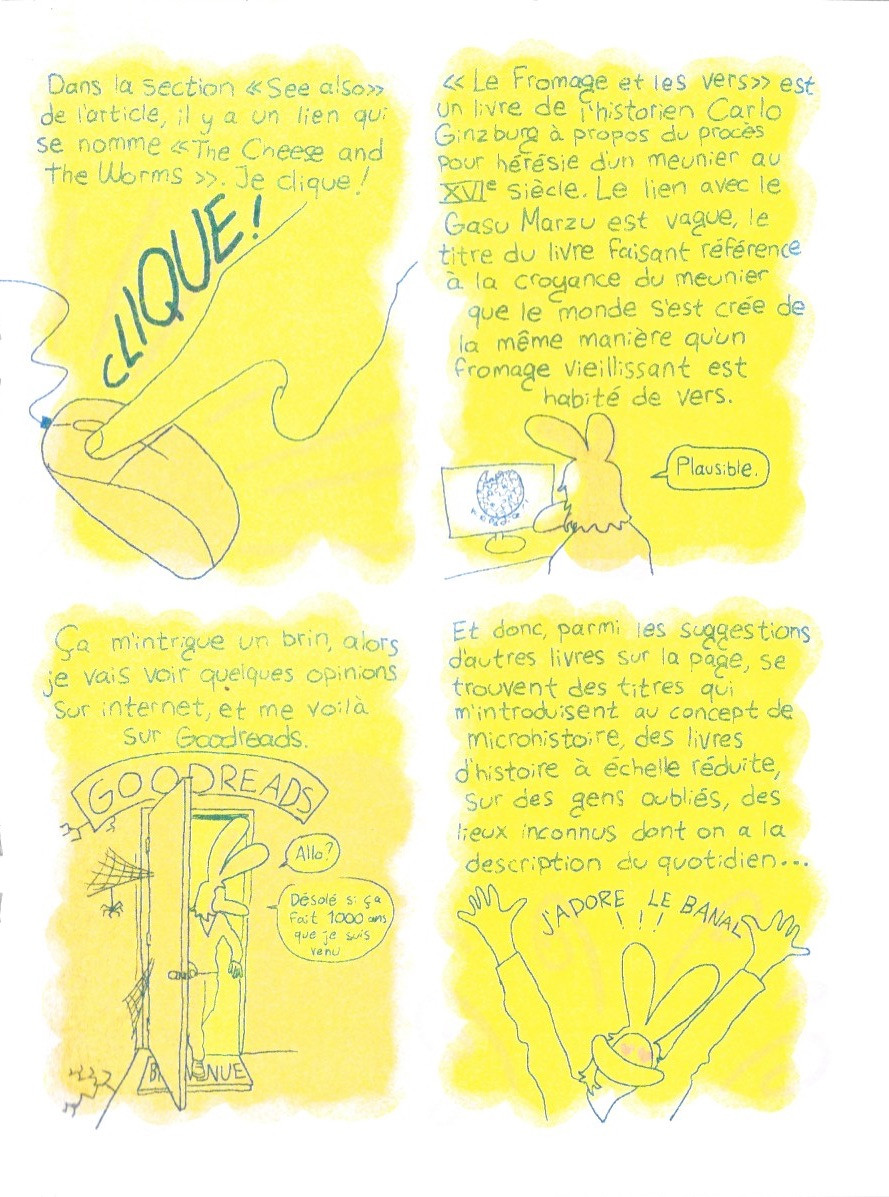 Dans la section «See also»
de l'article, il y a un lien qui
se nomme «The Cheese and
the Worms». Je clique!
CLIQUE!
«Le Fromage et les vers» est
un livre de l'historien Carlo
Ginzburg à propos du procès
pour hérésie d'un meunier au
XVIe siècle. Le lien avec le
Gasu Marzu est vague, le
titre du livre faisant référence
à la croyance du meunier
que le monde s'est crée de
la même manière qu'un
fromage vieillissant est
habité de vers.
Plausible.
Ça m'intrigue un brin, alors
je vais voir quelques opinions
sur internet, et me voilà
sur Goodreads.
GOODREADS
Allo?
Désolé si ça
fait 1000 ans
que je suis
venu
Et donc, parmi les suggestions
d'autres livres sur la page, se
trouvent des titres qui
m'introduisent au concept de
microhistoire, des livres
d'histoire à échelle réduite,
sur des gens oubliés, des
lieux inconnus dont on a la
description du quotidien...
J'ADORE LE BANAL
!!!